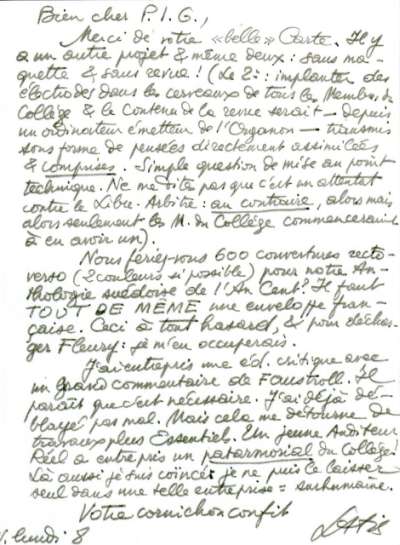 Bien cher P.I.G.,
Merci de votre «belle» Carte. Il y
a un autre projet & même deux : sans ma-
quette & sans revue ! (Le 2: : implanter des
électrodes dans les cerveaux de tous les Membres du
Collège & le contenu de la revue serait — depuis
un ordinateur émetteur de l'Organon — transmis
sous forme de pensées directement assimilées
& comprises. Simple question de mise au point
technique. Ne me dites pas que c'est un attentat
contre le Libre-Arbitre : au contraire, alors mais
alors seulement les M. du Collège commenceraient
à en avoir un).
Nous feriez-vous 600 couvertures recto-
verso (2 couleurs si possible) pour notre An-
thologie suédoise de l'An Cent? Il faut
TOUT DE MÊME une enveloppe fran-
çaise. Ceci à tout hasard, & pour déchar-
ger Fleury : je m'en occuperais.
J'ai entrepris une éd. critique avec
un grand commentaire de Faustroll. Il
paraît que c'est nécessaire. J'ai déjà dé-
blayé pas mal. Mais cela me détourne de
travaux plus Essentiels. Un jeune Auditeur
Réel a entrepris un patarmorial du Collège!
Là aussi je suis coincé : je ne puis le laisser
seul dans une telle entreprise = surhumaine.
Votre cornichon confit
Latis
lundi 8